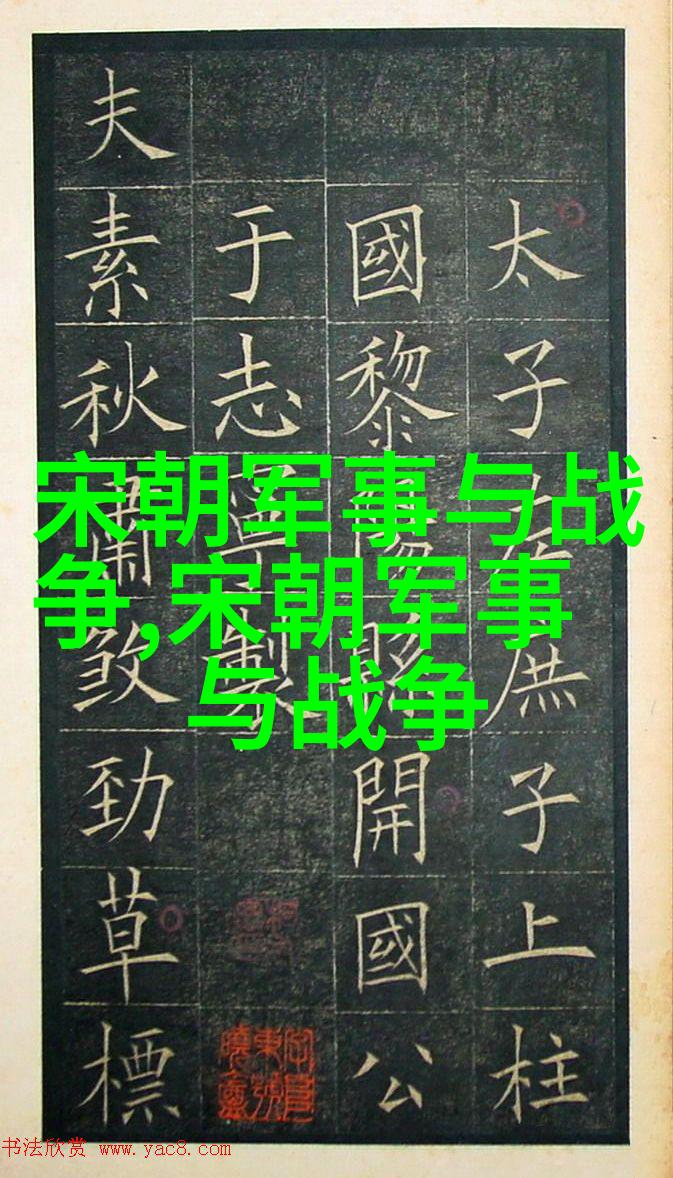 太子左庶子上柱
國黎陽縣開國公
于志寧製
夫素秋肅煞勁草標
宋朝军事与战
争,宋朝军事
与战争
书法欣赏 www.yac8.com